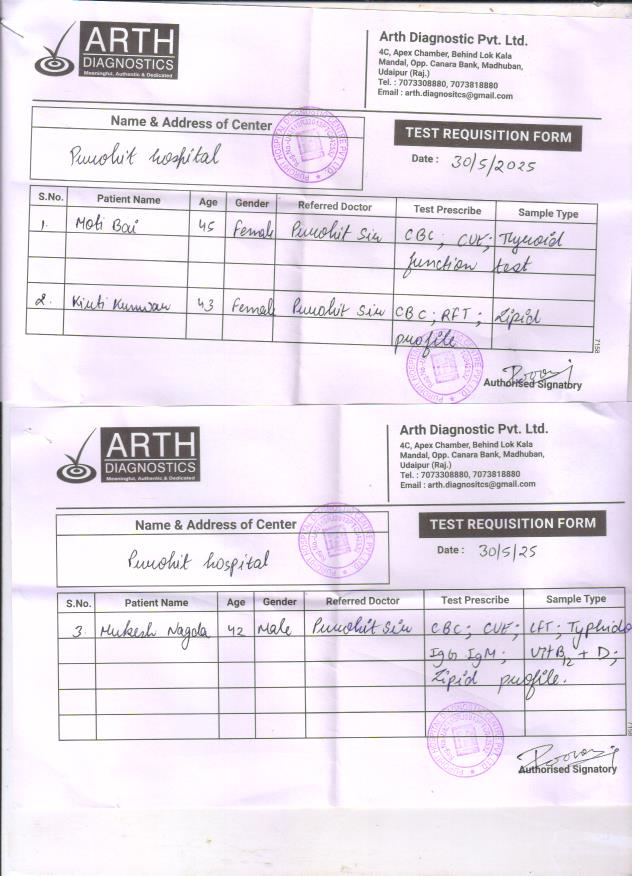 ARTH
DIAGNOSTICS
Meaningful, Authentic & Dedicated
Arth Diagnostic Pvt. Ltd.
4C, Apex Chamber, Behind Lok Kala
Mandal, Opp. Canara Bank, Madhuban,
Udaipur (Raj.)
Tel. : 7073308880, 7073818880
Email : arth.diagnositcs@gmail.com
Name & Address of Center
Purohit hospital
TEST REQUISITION FORM
Date : 30/5/2025
S.No. Patient Name Age Gender Referred Doctor Test Prescribe Sample Type
1. Moti Bai 45 Female Purohit Sir CBC; CUE; Thyroid
function test
2. Kirti Kunwar 43 Female Purohit Sir CBC; RFT; Lipid
profile
7158
Authorised Signatory
ARTH
DIAGNOSTICS
Meaningful, Authentic & Dedicated
Arth Diagnostic Pvt. Ltd.
4C, Apex Chamber, Behind Lok Kala
Mandal, Opp. Canara Bank, Madhuban,
Udaipur (Raj.)
Tel. : 7073308880, 7073818880
Email : arth.diagnositcs@gmail.com
Name & Address of Center
Purohit hospital
TEST REQUISITION FORM
Date : 30/5/25
S.No. Patient Name Age Gender Referred Doctor Test Prescribe Sample Type
3. Mukesh Nagda 42 Male Purohit Sir CBC; CUE; LFT; Typhido
IgG IgM; Vit B12 + D;
Lipid profile.
Authorised Signatory